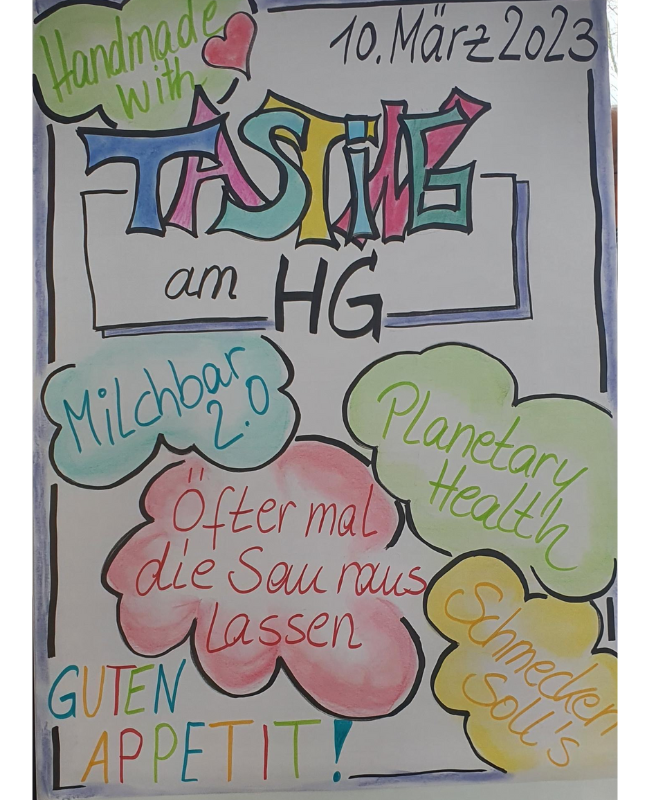 Handmade
with
10. März 2023
TASTING
am HG
Milchbar
2.0
Planetary
Health
Öfter mal
die Sau raus
lassen
Schmecken
soll's
GUTEN
APPETIT!